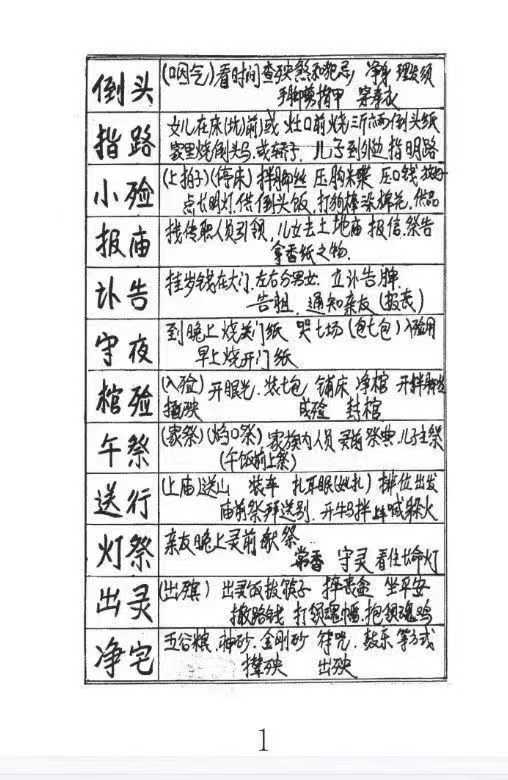 倒头 (咽气) 看时间查殃煞和犯忌, 净身 理发须
手脚剪指甲 穿寿衣
指路 女儿在床(炕)前)或 灶口前烧三斤六两倒头纸
家里烧倒头马, 或轿子, 儿子到外边 指明路
小殓 (上拍子)(停床) 拌脚丝 压胸米袋 压口钱
点长明灯. 供倒头饭, 打狗棒 供品
报庙 找传职人员引领, 儿女去土地庙 报信. 祭告
拿香纸之物.
讣告 挂岁钱在大门. 左右分男女. 立讣告牌
告祖, 通知亲友(报丧)
守夜 到晚上烧关门纸 哭七场(包七包)入殓用
早上烧开门纸
棺殓 (入殓) 开眼光. 装七包 铺床 净棺 开拌脚丝
殃 成殓 封棺
午祭 (家祭) 家族内人员 灵前祭典. 儿子主祭
(午饭前上祭)
送行 (上庙)送山 装车 扎耳眼 排位出发
庙前祭拜送别. 开牛马拌 喊躲火
灯祭 亲友晚上灵前献祭
常香 守灵 看住长命灯
出灵 (出殡) 出灵饭拔筷子 摔丧盆 坐平安
撒路钱 打领魂幡. 抱领魂鸡
净宅 五谷粮. 神砂. 金刚砂 符咒. 鼓乐等方式
撵殃 出殃
1